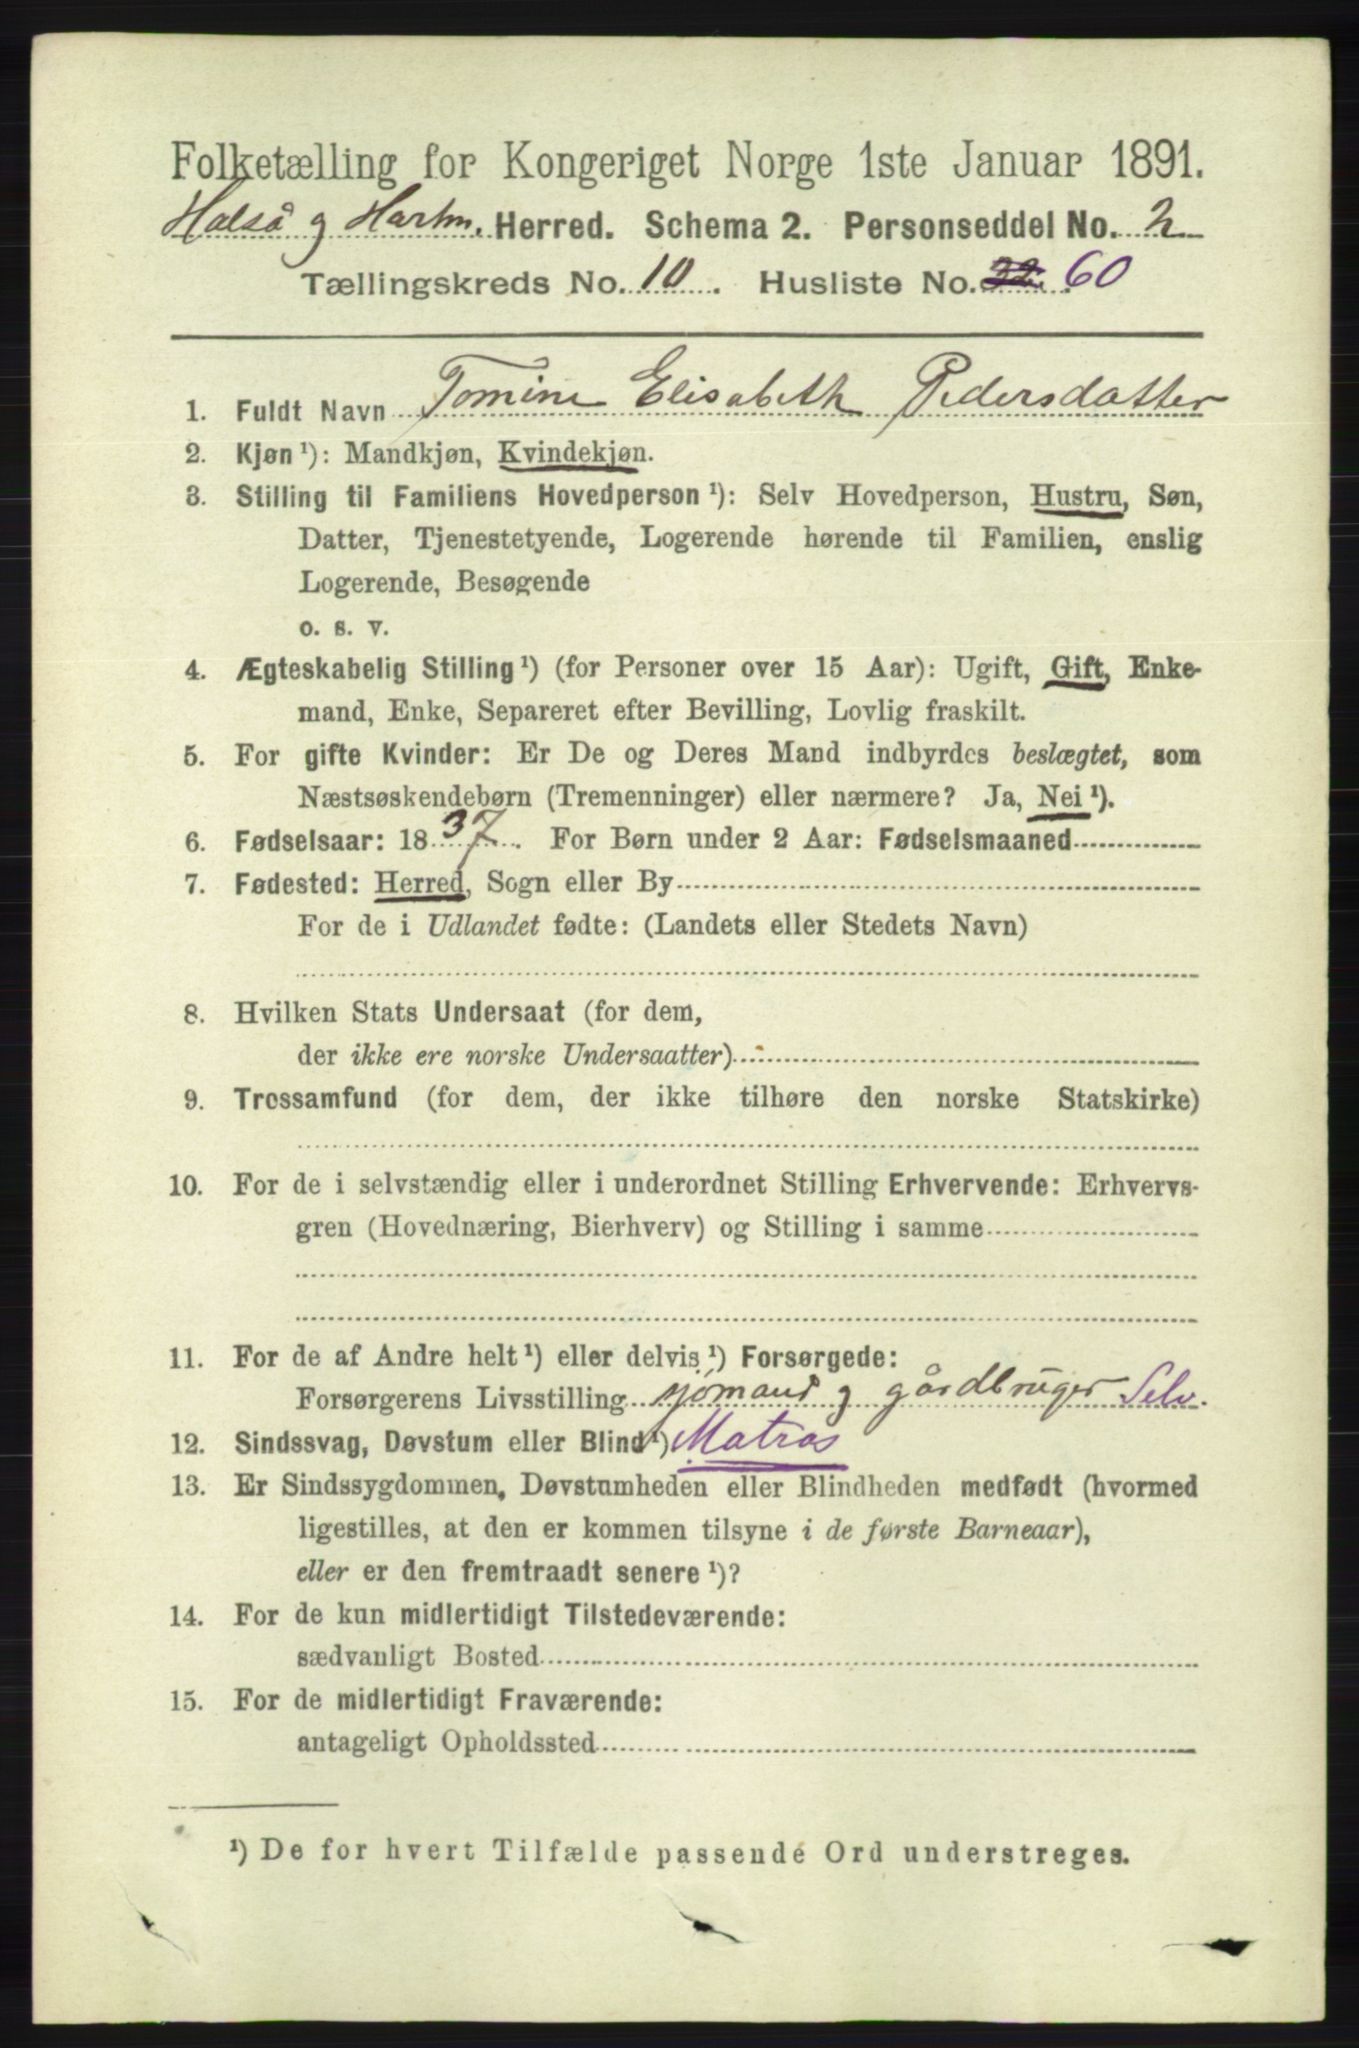 Folketælling for Kongeriget Norge 1ste Januar 1891.
Halså og Hartm. Herred. Schema 2. Personseddel No. 2
Tællingskreds No. 10. Husliste No. 32. 60
1. Fuldt Navn Tomine Elisabeth Pedersdatter
2. Kjøn ¹): Mandkjøn, Kvindekjøn.
3. Stilling til Familiens Hovedperson ¹): Selv Hovedperson, Hustru, Søn,
Datter, Tjenestetyende, Logerende hørende til Familien, enslig
Logerende, Besøgende
o. s. v.
4. Ægteskabelig Stilling ¹) (for Personer over 15 Aar): Ugift, Gift, Enke-
mand, Enke, Separeret efter Bevilling, Lovlig fraskilt.
5. For gifte Kvinder: Er De og Deres Mand indbyrdes beslægtet, som
Næstsøskendebørn (Tremenninger) eller nærmere? Ja, Nei ¹).
6. Fødselsaar: 1837. For Børn under 2 Aar: Fødselsmaaned
7. Fødested: Herred, Sogn eller By
For de i Udlandet fødte: (Landets eller Stedets Navn)
8. Hvilken Stats Undersaat (for dem,
der ikke ere norske Undersaatter)
9. Trossamfund (for dem, der ikke tilhøre den norske Statskirke)
10. For de i selvstændig eller i underordnet Stilling Erhvervende: Erhvervs-
gren (Hovednæring, Bierhverv) og Stilling i samme
11. For de af Andre helt ¹) eller delvis ¹) Forsørgede:
Forsørgerens Livsstilling sjömand og gårdbruger Selv.
12. Sindssvag, Døvstum eller Blind ¹) Matros
13. Er Sindssygdommen, Døvstumheden eller Blindheden medfødt (hvormed
ligestilles, at den er kommen tilsyne i de første Barneaar),
eller er den fremtraadt senere ¹)?
14. For de kun midlertidigt Tilstedeværende:
sædvanligt Bosted
15. For de midlertidigt Fraværende:
antageligt Opholdssted
¹) De for hvert Tilfælde passende Ord understreges.